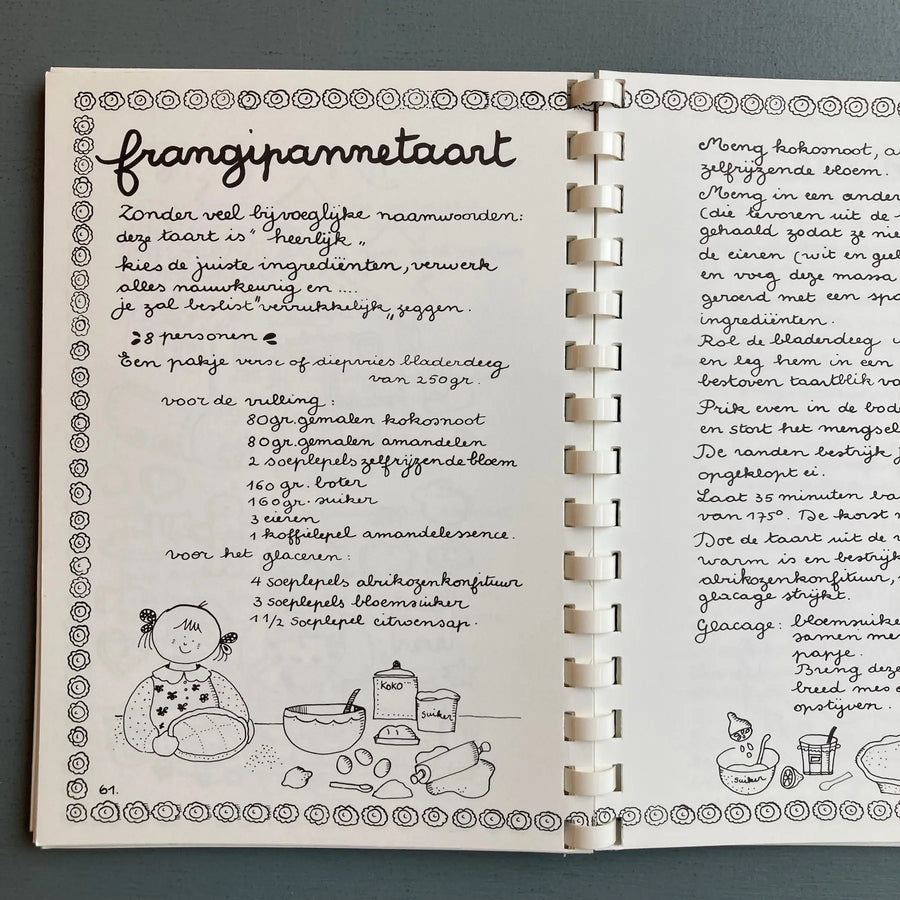 frangipannetaart
Zonder veel bijvoeglijke naamwoorden:
deze taart is "heerlijk"
kies de juiste ingrediënten, verwerk
alles nauwkeurig en ....
je zal beslist "verrukkelijk" zeggen.
8 personen
Een pakje verse of diepvries bladerdeeg
van 250gr.
voor de vulling:
80gr. gemalen kokosnoot
80gr. gemalen amandelen
2 soeplepels zelfrijzende bloem
160 gr. boter
160gr. suiker
3 eieren
1 koffielepel amandelessence.
voor het glaceren:
4 soeplepels abrikozenkonfituur
3 soeplepels bloemsuiker
1 1/2 soeplepel citroensap.
KoKo
suiker
61.
Meng kokosnoot, a
zelfrijzende bloem.
Meng in een ander
(die tevoren uit de
gehaald zodat ze nie
de eieren (wit en geel
en voeg deze massa
geroerd met een spa
ingrediënten.
Rol de bladerdeeg u
en leg hem in een
bestoven taartblik va
Prik even in de bod
en stort het mengsel
De randen bestrijk j
opgeklopt ei.
Laat 35 minuten ba
van 175°. De korst m
Doe de taart uit de v
warm is en bestrijk
abrikozenkonfituur,
glacage strijkt.
Glacage: bloemsuike
samen me
papje.
Breng deze
breed mes o
opstijven.
suiker